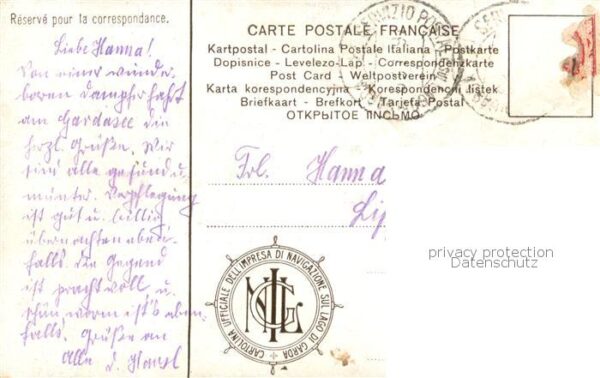 Réservé pour la correspondance.
Liebe Hanna!
Von einer wunder-
baren Dampferfahrt
am Gardasee die
herzl. Grüße. Wir
sind alle gesund u.
munter. Verpflegung
ist gut u. billig
übernachten eben-
falls. Die Gegend
ist prachtvoll u.
schön warm ist's eben
falls. Grüße an
Alle d. Hansl
CARTE POSTALE FRANÇAISE
Kartpostal - Cartolina Postale Italiana - Postkarte
Dopisnice - Levelezo-Lap - Correspondenzkarte
Post Card - Weltpostverein
Karta korespondencyjna - Korespondencni listek
Briefkaart - Brefkort - Tarjeta Postal
ОТКРЫТОЕ ПІСЬМО
Frl. Hanna
privacy protection
Datenschutz
CARTOLINA UFFICIALE DELL'IMPRESA DI NAVIGAZIONE SUL LAGO DI GARDA